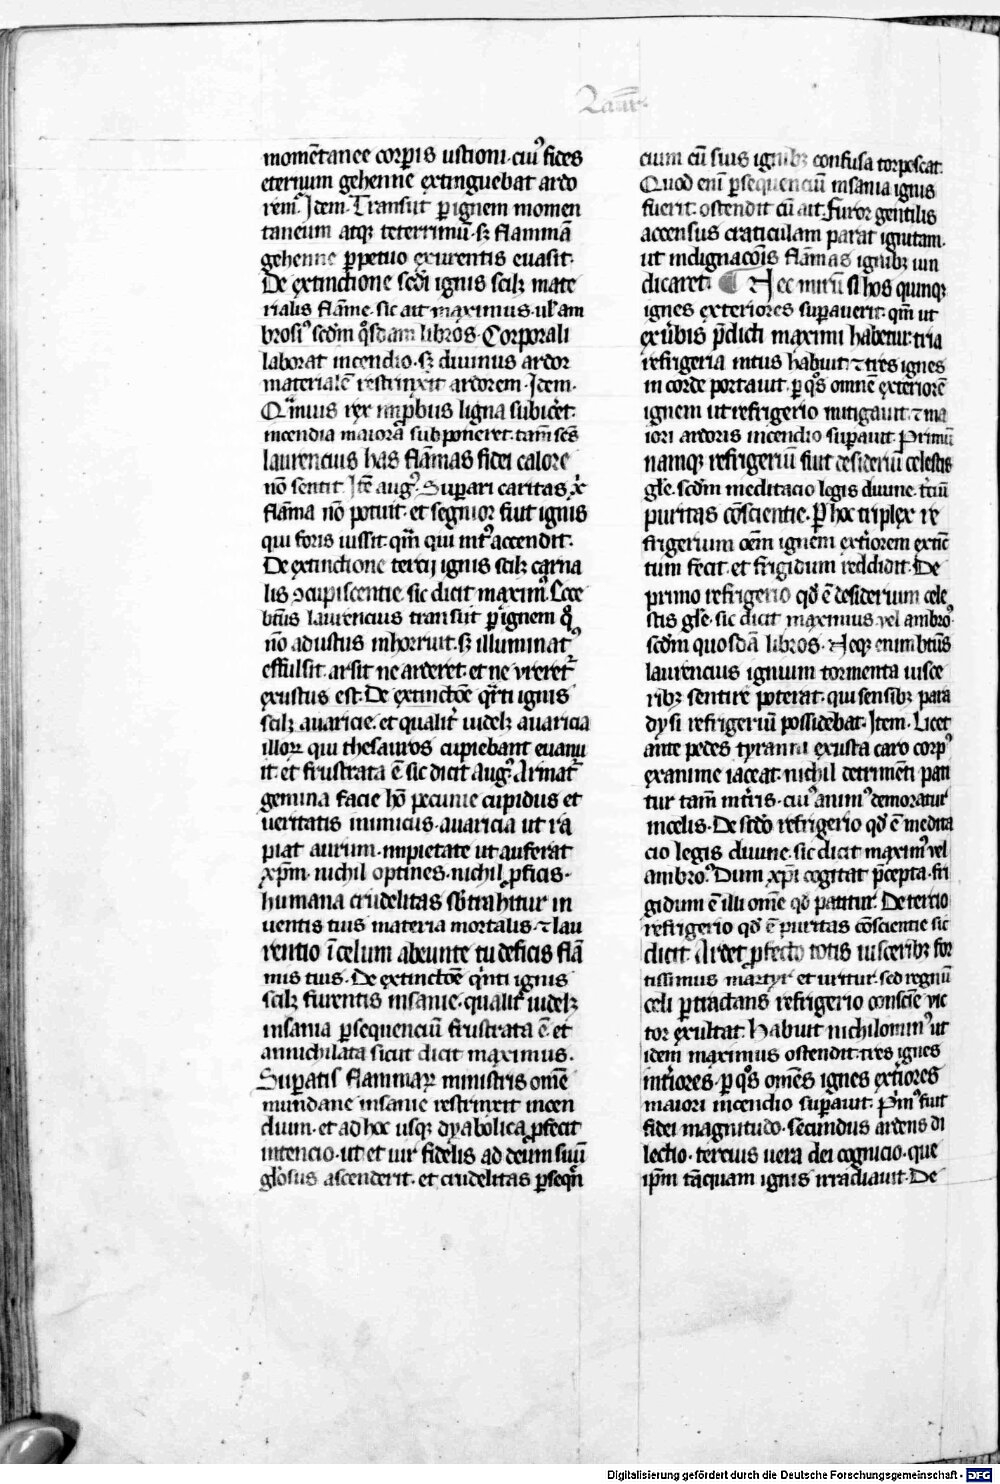 Laur̄
momētanee corꝑis ustioni· cuiꝰ fides
eternum gehenne extinguebat ardo
rem̄. Idem· Transiit ꝑ ignem momen
taneum atqꝫ teterrimū· sꝫ flammā
gehenne ꝑpetuo exurentis euasit·
De extinctione sedi ignis scilꝫ mate
rialis flāme· sic ait maximus· ul' am
brosiꝰ scdm qͦsdam libros· Corporali
laborat incendio· sꝫ diuinus ardor
materialē restrinxit ardorem· Idem·
Qͣmuis rex impius ligna subic̓et·
incendia maiorā sub poneret· tam̄ scs̄
laurencius has flāmas fidei calore
nō sentit· Itē augꝰ· Suꝑari caritas xͥ
flāma nō potuit· et segnior fuit ignis
qui foris iussit· qm̄ qui intꝰ accendit·
De extinctione tercij ignis scilꝫ carna
lis ꝯcupiscentie sic dicit maximꝰ. Ecce
bt̄us laurencius transiit ꝑ ignem qͦ
nō adustus inhorruit· sꝫ illuminatꝰ
effulsit· arsit ne arderet· et ne vreretͬ
exustus est· De extinctōe qͣrti ignis
scilꝫ auaricie· et qualit̓ uidelꝫ auaricia
illoꝝ qui thesauros cupiebant euanu
it· et frustrata ē sic dicit augꝰ· Armatͬ
gemina facie hō pecunie cupidus et
ueritatis inimicus· auaricia ut ra
piat aurum· impietate ut auferat
xpm̄· nichil optines· nichil ꝓficis·
humana crudelitas sb̄trahitur in
uentis tuis materia mortalis· ⁊ lau
rentio ī celum abeunte tu deficis flā
mis tuis· De extinctōe qͥnti ignis
scilꝫ furentis insanie· qualit̓ uidelꝫ
insania ꝑsequenciū frustrata ē· et
annichilata sicut dicit maximus·
Suꝑatis flammaꝝ ministris om̄e
mundane insanie restrinxit incen
dium· et ad hoc usqꝫ dyabolica ꝓfecit
intencio· ut et uir fidelis ad deum suū
gl'osus ascenderit· et crudelitas ꝑseqn̄
cium cū suis ignibꝫ confusa torpescat·
Quod enī ꝑsequenciū insania ignis
fuerit· ostendit cū ait· furor gentilis
accensus craticulam parat ignitam·
ut indignacōis flāmas ignibꝫ uin
dicaret· Nec mirū si hos quinqꝫ
ignes exteriores suꝑauerit· qm̄ ut
ex u̓bis p̄dicti maximi habetur· tria
refrigeria intus habuit· ⁊ tres ignes
in corde portauit· ꝑ qͦs omnē exteriorē
ignem ut refrigerio mitigauit· ⁊ ma
iori ardoris incendio suꝑauit· Primū
namqꝫ refrigeriū fuit desideriū celestis
gl'e· scdm meditacio legis diuine· t̓ciū
puritas cōscientie· Ꝑ hoc triplex re
frigerium oēm ignem ext̓iorem extīc
tum fecit· et frigidum reddidit· De
primo refrigerio qd̓ ē desiderium cele
stis gl'e· sic dicit maximus· vel ambroꝰ·
scdm quosdā libros· Neqꝫ enim bt̄us
laurencius ignium tormenta uisce
ribꝫ sentire poterat· qui sensibꝫ para
dysi refrigeriū possidebat· Item· Licet
ante pedes tyranni exusta caro corpꝰ
exanime iaceat· nichil detrimēti pati
tur tam̄ int̓ris· cuiꝰ animꝰ demoratur
in celis· De scdo refrigerio qd̓ ē medita
cio legis diuine· sic dicit maximꝰ vel
ambroꝰ. Dum xpi cogitat p̄cepta· fri
gidum ē illi om̄e qd̓ patitur· De tercio
refrigerio qd̓ ē puritas cōscientie sic
dicit· Ardet ꝓfecto totis uisceribꝫ for
tissimus martyr et uritur· sed regnū
celi ꝑtractans refrigerio consciēe vic
tor exultat· Habuit nichilominꝰ ut
idem maximus ostendit· tres ignes
int̓iores· ꝑ qͦs omēs ignes ext̓iores
maiori incendio suꝑauit· P̓mꝰ fuit
fidei magnitudo· secundus ardens di
lectio· tercius uera dei cognicio· que
ipm̄ tāquam ignis irradiauit· De
Digitalisierung gefördert durch die Deutsche Forschungsgemeinschaft - DFG